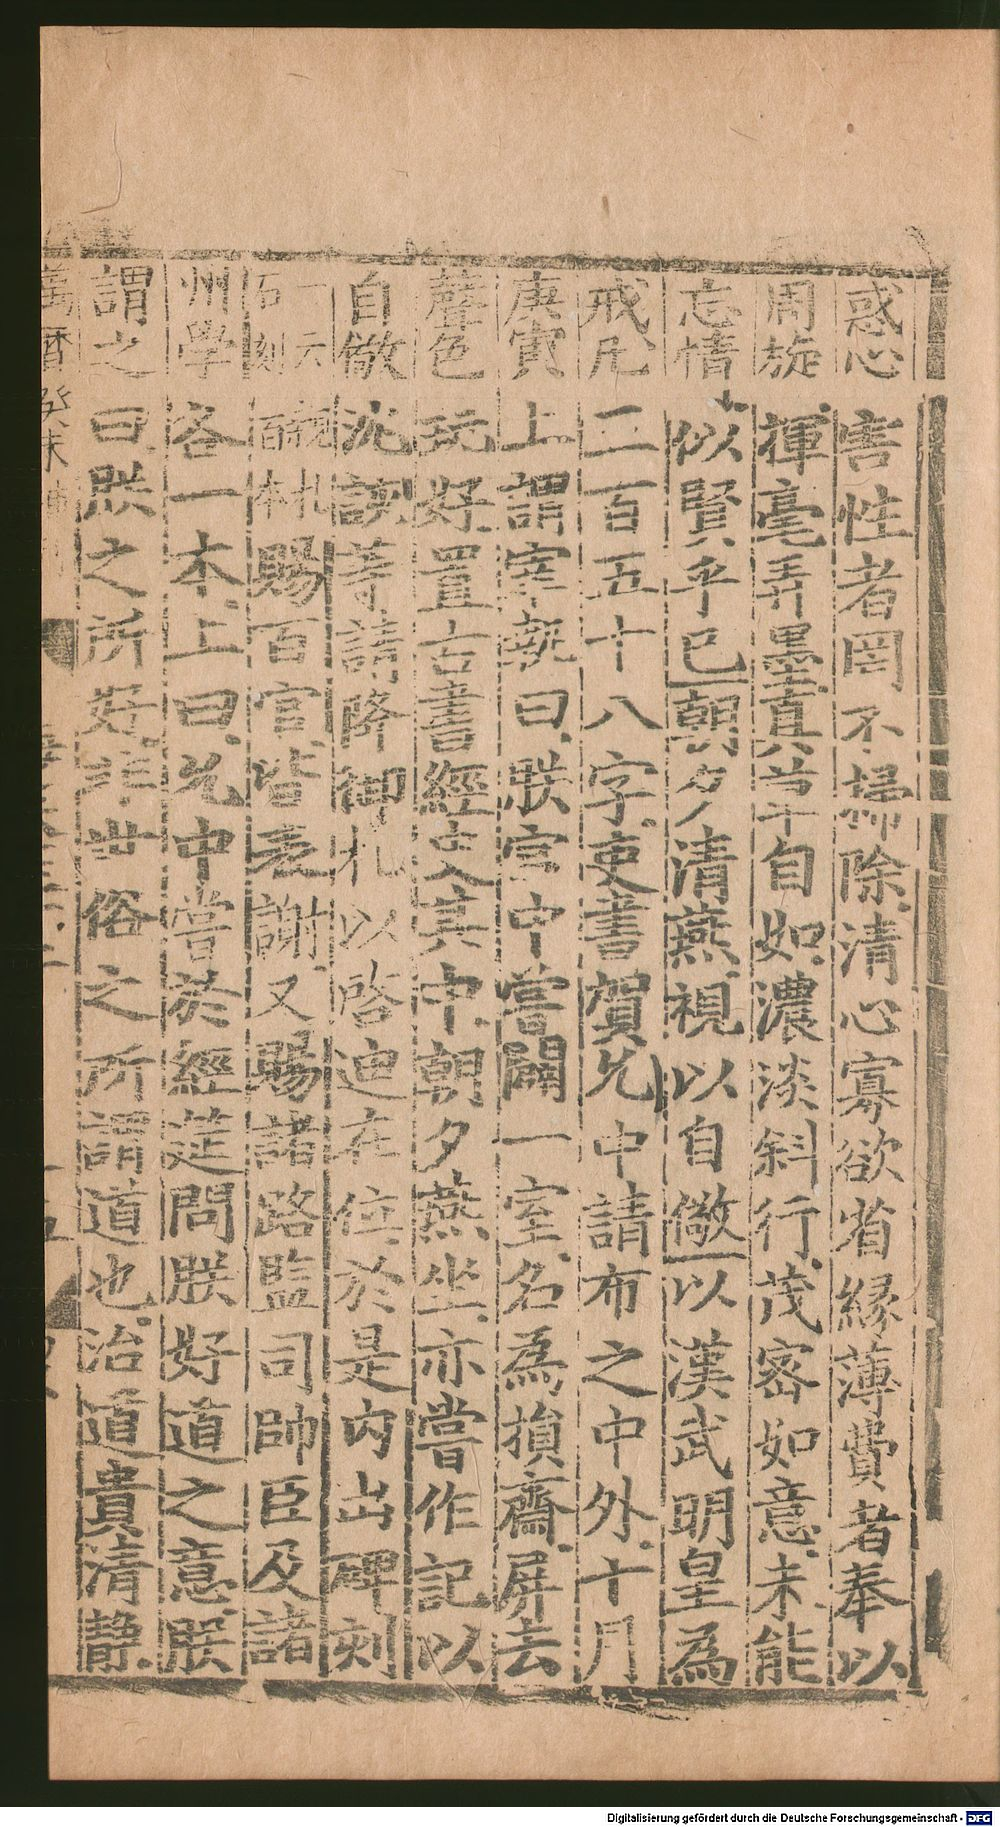 惑心害性者罔不掃除清心寡欲省緣薄費者奉以
周旋揮毫弄墨真草自如濃淡斜行茂密如意未能
忘情似賢乎已朝夕清燕視以自儆以漢武明皇為
戒凡二百五十八字吏書賀允中請布之中外十月
庚寅上謂宰執曰朕宫中嘗闢一室名為損齋屏去
聲色玩好置古書經史其中朝夕燕坐亦嘗作記以
自儆沈該等請降御札以啓迪在位於是内出碑刻
一云親札石刻百本賜百官皆表謝又賜諸路監司帥臣及諸
州學各一本上曰允中嘗於經筵問朕好道之意朕
謂之曰朕之所好非世俗之所謂道也治道貴清靜
萬曆癸未
Digitalisierung gefördert durch die Deutsche Forschungsgemeinschaft - DFG